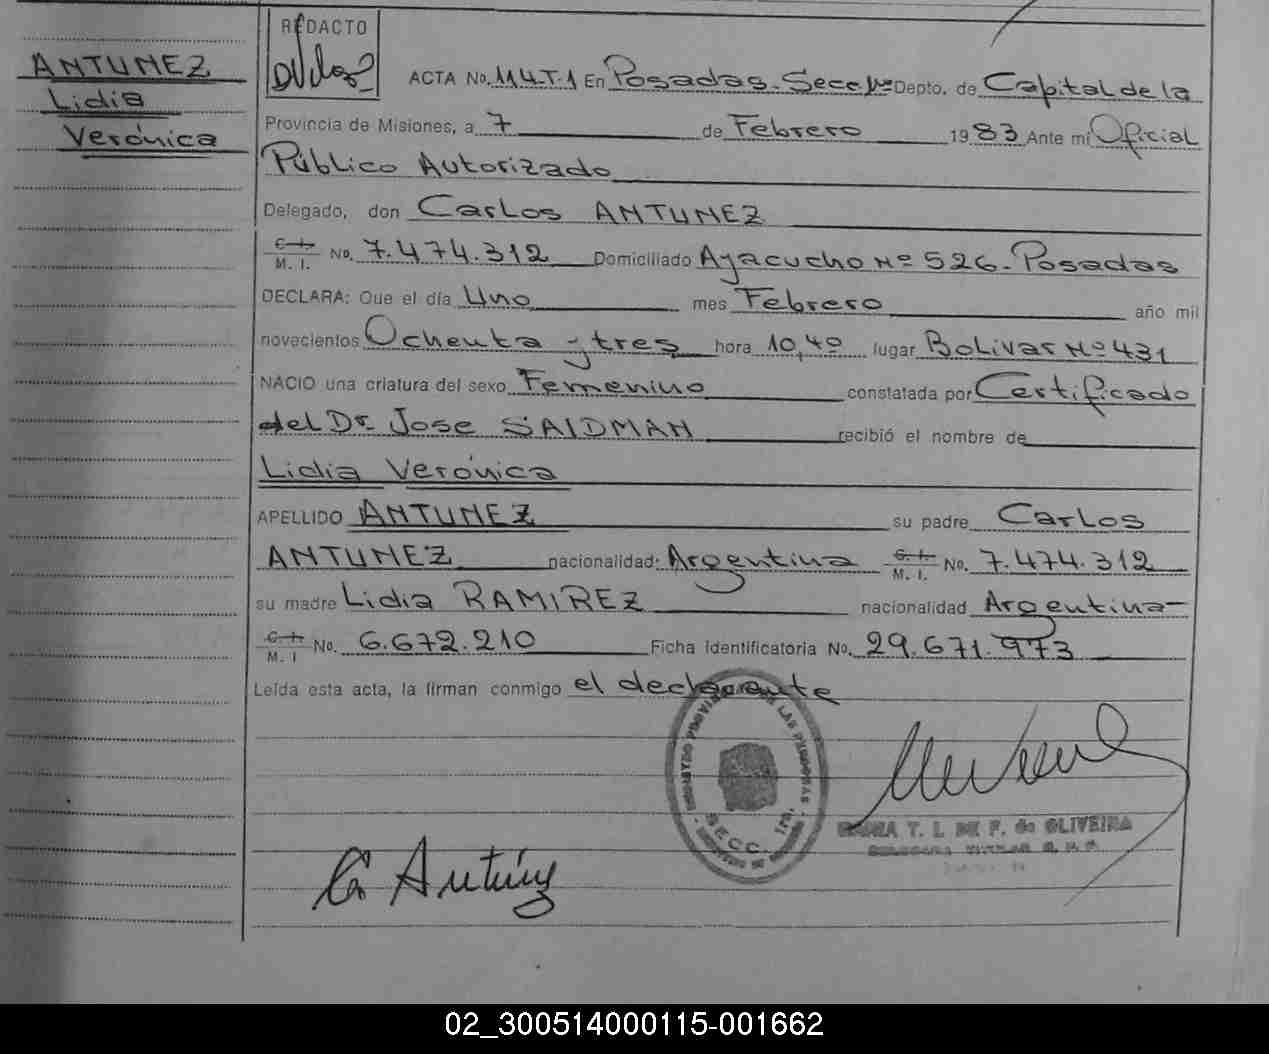 REDACTO
ANTUNEZ
Lidia
Verónica
ACTA No. 114.T.1 En Posadas. Secc 1ra Depto. de Capital de la
Provincia de Misiones, a 7 de Febrero 1983 Ante mí Oficial
Público Autorizado
Delegado, don Carlos ANTUNEZ
C. I. M. I. No. 7.474.312 Domiciliado Ayacucho Nº 526. Posadas
DECLARA: Que el día Uno mes Febrero año mil
novecientos Ochenta y tres hora 10,40 lugar Bolivar Nº 431
NACIO una criatura del sexo Femenino constatada por Certificado
del Dr. Jose SAIDMAN recibió el nombre de
Lidia Verónica
APELLIDO ANTUNEZ su padre Carlos
ANTUNEZ nacionalidad: Argentina C. I. M. I. No. 7.474.312
su madre Lidia RAMIREZ nacionalidad Argentina
C. I. M. I No. 6.672.210 Ficha identificatoria No. 29.671.973
Leída esta acta, la firman conmigo el declarante
DE LAS PERSONAS
SECC. 1ra.
T. L. DE F. de OLIVEIRA
C. Antúnez
02_300514000115-001662